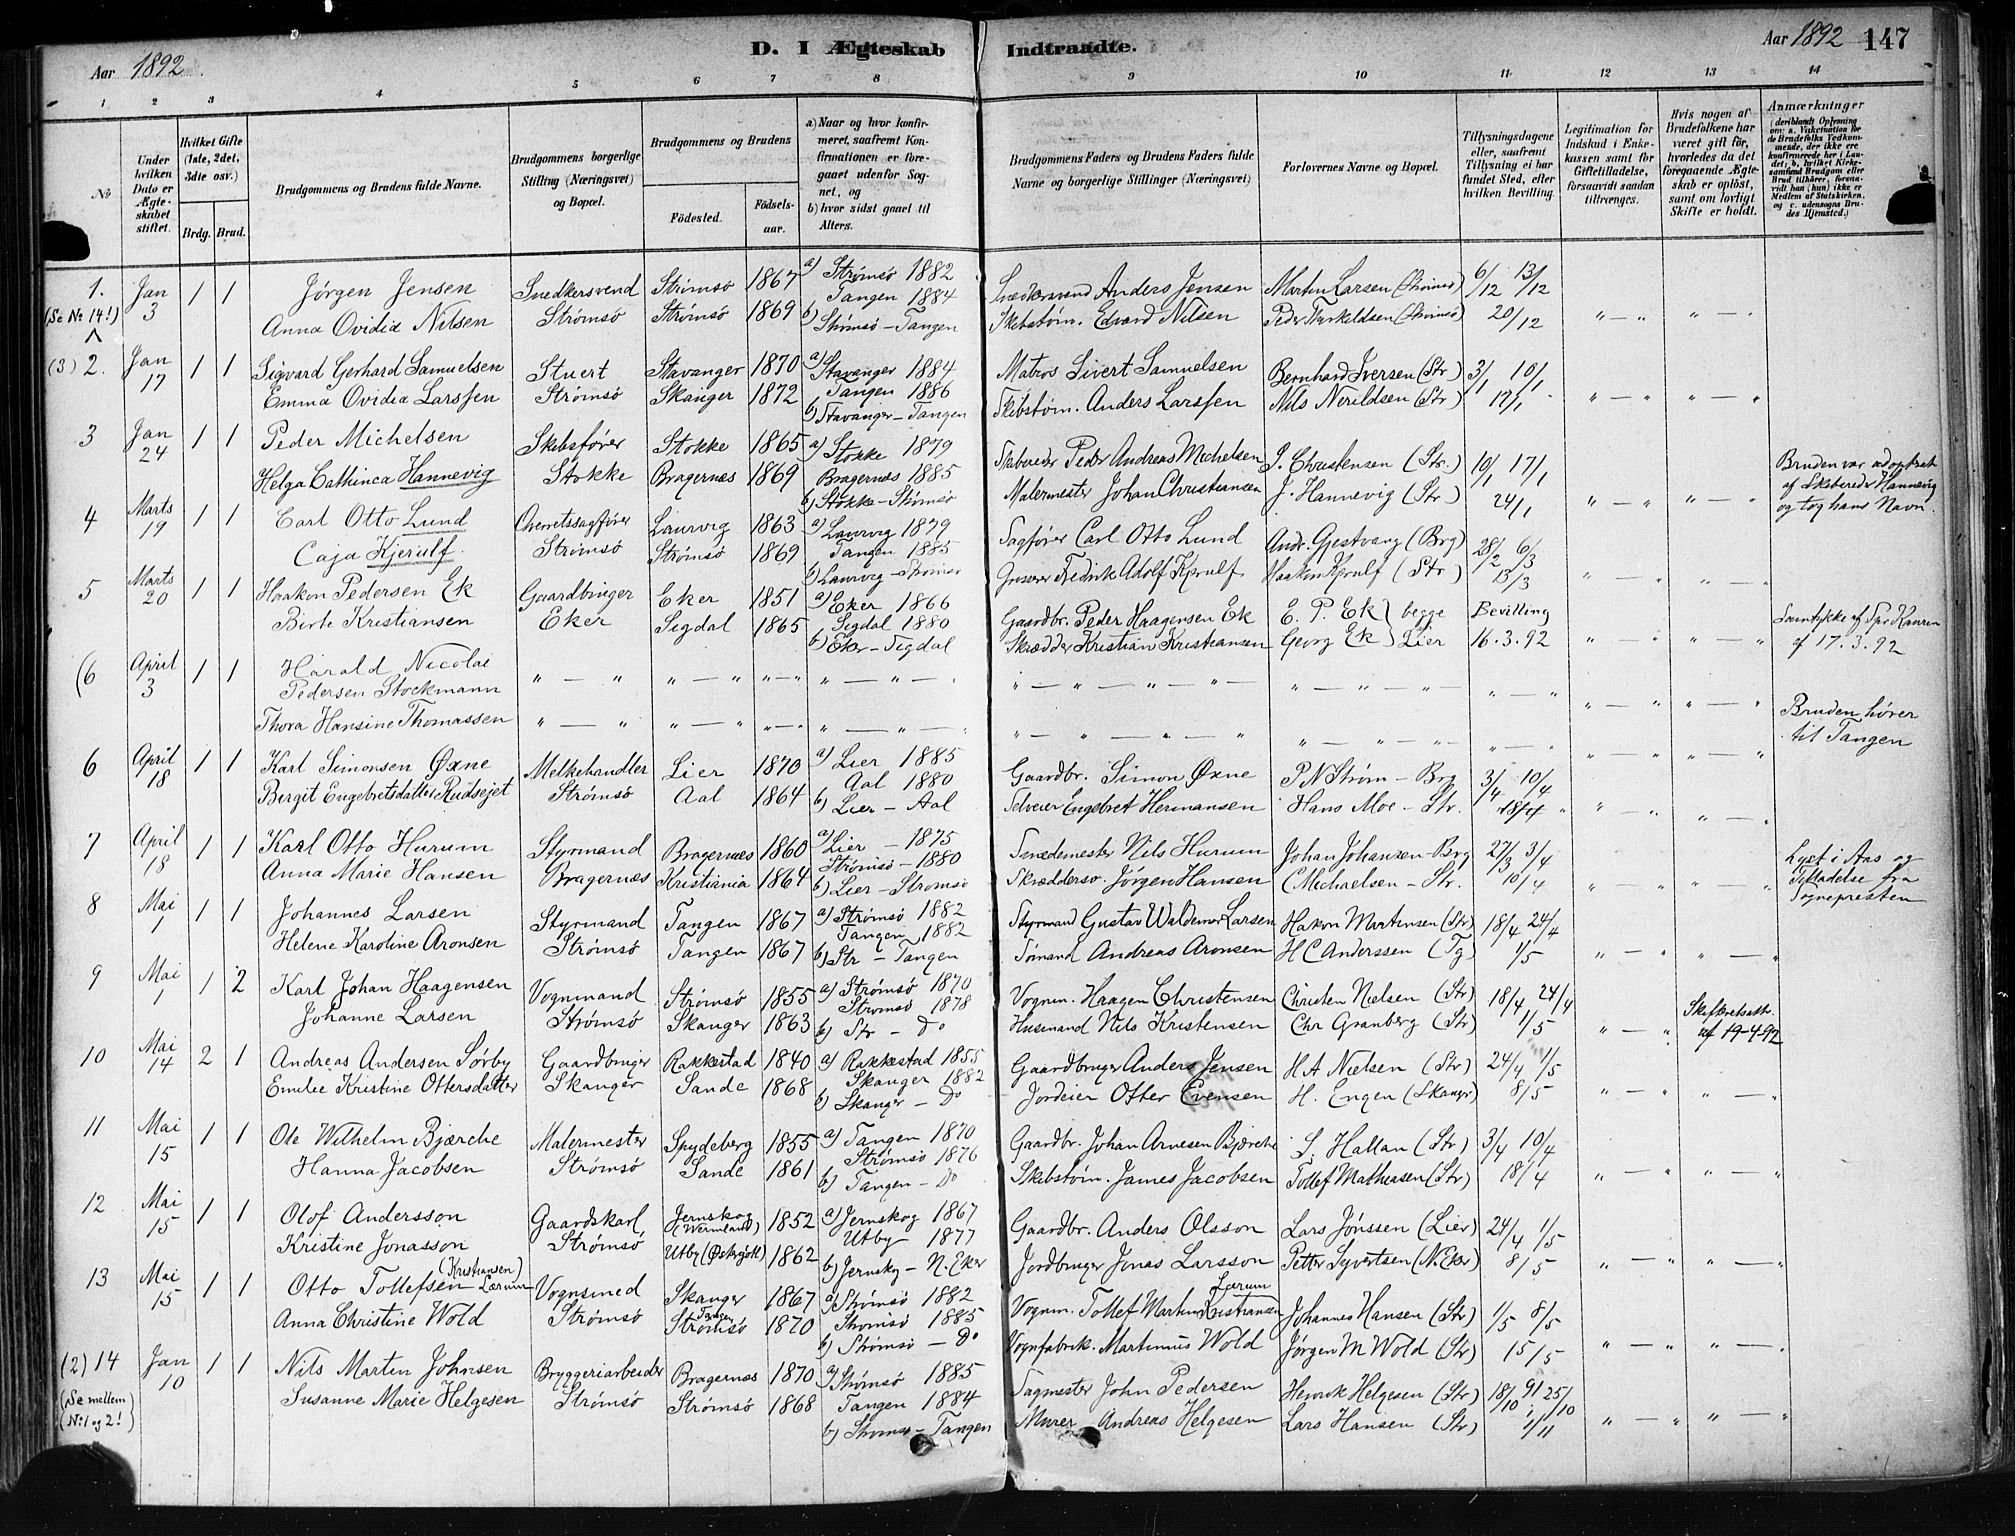 Aar 1892.
D. I Ægteskab Indtraadte.
Aar 1892 147
1 2 3 4 5 6 7 8 9 10 11 12 13 14
No
Under hvilken Dato er Ægteskabet stiftet.
Hvilket Gifte (1ste, 2det, 3dte osv.)
Brdg. Brud.
Brudgommens og Brudens fulde Navne.
Brudgommens borgerlige Stilling (Næringsvei) og Bopæl.
Brudgommens og Brudens
Fødested. Fødselsaar.
a) Naar og hvor konfirmeret, saafremt Konfirmationen er foregaaet udenfor Sognet, og
b) hvor sidst gaaet til Alters.
Brudgommens Faders og Brudens Faders fulde Navne og borgerlige Stillinger (Næringsvei)
Forlovernes Navne og Bopæl.
Tillysningsdagene eller, saafremt Tillysning ei har fundet Sted, efter hvilken Bevilling.
Legitimation for Indskud i Enkekassen samt for Giftetilladelse, forsaavidt saadan tiltrænges.
Hvis nogen af Brudefolkene har været gift før, hvorledes da det foregaaende Ægteskab er opløst, samt om lovligt Skifte er holdt.
Anmærkninger (deriblandt Oplysning om: a. Vakcination for de Brudefolks Vedkommende, der ikke ere konfirmerede her i Landet; b. hvilket Kirkesamfund Brudgom eller Brud tilhører, forsaavidt han (hun) ikke er Medlem af Statskirken, og c. udensogns Brudes Hjemsted.)
1. Jan 3 1 1 Jørgen Jensen Snedkersvend Strømsø 1867 a) Strømsø 1882 Snedkersvend Anders Jensen Martin Larsen (Strømsø) 6/12 13/12
(Se No 14!) Anna Ovidia Nilsen Strømsø Strømsø 1869 Tangen 1884 b) Strømsø - Tangen Skibstøm. Edvard Nilsen Peder Thorkeldsen (Strømsø) 20/12 " - " " - "
(3) 2. Jan 17 1 1 Sigvard Gerhard Samuelsen Stuert Stavanger 1870 a) Stavanger 1884 Matros Sivert Samuelsen Bernhard Iversen (Str) 3/1 10/1
Emma Ovidia Larssen Strømsø Skanger 1872 Tangen 1886 b) Stavanger - Tangen Skibstøm. Anders Larssen Nils Nerildsen (Str) 17/1 " - " " - "
3 Jan 24 1 1 Peder Michelsen Skibsfører Stokke 1865 a) Stokke 1879 Skibsreder Peder Andreas Michelsen S. Christensen (Str.) 10/1 17/1 Bruden var adopteret
Helga Cathinca Hannevig Stokke Bragernæs 1869 Bragernæs 1885 b) Stokke - Strømsø Malermester Johan Christiansen J. Hannevig (Str) 24/1 " - " " - " af Skibsreder Hannevig og tog hans Navn.
4 Marts 19 1 1 Carl Otto Lund Overretssagfører Laurvig 1863 a) Laurvig 1879 Sagfører Carl Otto Lund Andr. Gjestvang (Brg) 28/2 6/3
Caja Kjerulf. Strømsø Strømsø 1869 Tangen 1885 b) Laurvig - Strømsø Grosserer Fredrik Adolf Kjerulf Haakon Kjerulf (Str) 13/3 " - " " - "
5 Marts 20 1 1 Haakon Pedersen Ek Gaardbruger Eker 1851 a) Eker 1866 Gaardbr. Peder Haagensen Ek E. P. Ek } begge Bevilling Samtykke af Spr Kauren
Birte Kristiansen Eker Sigdal 1865 Sigdal 1880 b) Eker - Sigdal Skrædder Kristian Kristiansen Georg Ek } Lier 16.3.92 " - " " - " af 17.3.92
(6 April 3 1 1 Harald Nicolai Pedersen Stockmann " - " " - " " - " " - " - " " - " - " - " " - " - " " - " " - " " - "
Thora Hansine Thomassen " - " " - " " - " " - " - " " - " - " - " " - " - " " - " " - " " - " Bruden hører til Tangen
6 April 18 1 1 Karl Simonsen Øxne Melkehandler Lier 1870 a) Lier 1885 Gaardbr. Simon Øxne P N Strøm - Brg 3/4 10/4
Birgit Engebretsdatter Rudsejet Strømsø Aal 1864 Aal 1880 b) Lier - Aal Selveier Engebret Hermansen Hans Moe - Str. 18/4 " - " " - "
7 April 18 1 1 Karl Otto Hurum Styrmand Bragernæs 1860 a) Lier - 1875 Smedemester Nils Hurum Johan Johansen - Brg 27/3 3/4 Lyst i Aas og
Anna Marie Hansen Bragernæs Kristiania 1864 Strømsø - 1880 b) Lier - Strømsø Skræddersv. Jørgen Hansen C Michaelsen - Str. 10/4 " - " " - " Tilladelse fra Sognepresten
8 Mai 1 1 1 Johannes Larsen Styrmand Tangen 1867 a) Strømsø 1882 Styrmand Gustav Waldemar Larsen Hakon Mortensen (Str) 18/4 24/4
Helene Karoline Aronsen Strømsø Tangen 1867 Tangen 1882 b) Str - Tangen Sømand Andreas Aronsen H C Anderssen (Tg) 1/5 " - " " - "
9 Mai 1 1 2 Karl Johan Haagensen Vognmand Strømsø 1855 a) Strømsø 1870 Vognm. Haagen Christensen Christen Nielsen (Str) 18/4 24/4 Skifteretsatt.
Johanne Larsen Strømsø Skanger 1863 Strømsø 1878 b) Str - Do Husmand Nils Kristensen Chr Granberg (Str) 1/5 " - " af 19-4-92
10 Mai 14 2 1 Andreas Andersen Sørby Gaardbruger Rakkestad 1840 a) Rakkestad 1855 Gaardbruger Anders Jensen H A Nielsen (Str) 24/4 1/5
Emilie Kristine Ottersdatter Skanger Sande 1868 Skanger 1882 b) Skanger - Do Jordeier Otter Evensen H. Engen (Skangr) 8/5 " - " " - "
11 Mai 15 1 1 Ole Wilhelm Bjærche Malermester Spydeberg 1855 a) Tangen 1870 Gaardbr. Johan Arnesen Bjærche S. Hallan (Str) 3/4 10/4
Hanna Jacobsen Strømsø Sande 1861 Strømsø 1876 b) Tangen - Do Skibstøm. James Jacobsen Tollef Mathiasen (Str) 18/4 " - " " - "
12 Mai 15 1 1 Olof Andersson Gaardskarl Jernskog (Wermland) 1852 a) Jernskog 1867 Gaardbr. Anders Olsson Lars Jønssen (Lier) 24/4 1/5
Kristine Jonasson Strømsø Utby (Østrgötl) 1862 Utby 1877 b) Jernskg - N. Eker Jordbruger Jonas Larsson Petter Syvertsen (N. Eker) 8/5 " - " " - "
13 Mai 15 1 1 Otto Tollefsen (Kristiansen) Lærum Vognsmed Skanger 1867 a) Strømsø 1882 Vognm. Tollef Martin Kristiansen Lærum Johannes Hansen (Str) 1/5 8/5
Anna Christine Wold Strømsø Tangen Strømsø 1870 Strømsø 1885 b) Strømsø - Do Vognfabrik. Martinius Wold Jørgen M Wold (Str) 15/5 " - " " - "
(2) 14 Jan 10 1 1 Nils Martin Johnsen Bryggeriarbeider Bragernæs 1870 a) Strømsø 1885 Sagmester John Pedersen Henrik Helgesen (Str) 18/10 91 25/10
(Se mellem No 1 og 2!) Susanne Marie Helgesen Strømsø Strømsø 1868 Tangen 1884 b) Strømsø - Tangen Murer Andreas Helgesen Lars Hansen (Str) 1/11 " - " " - "